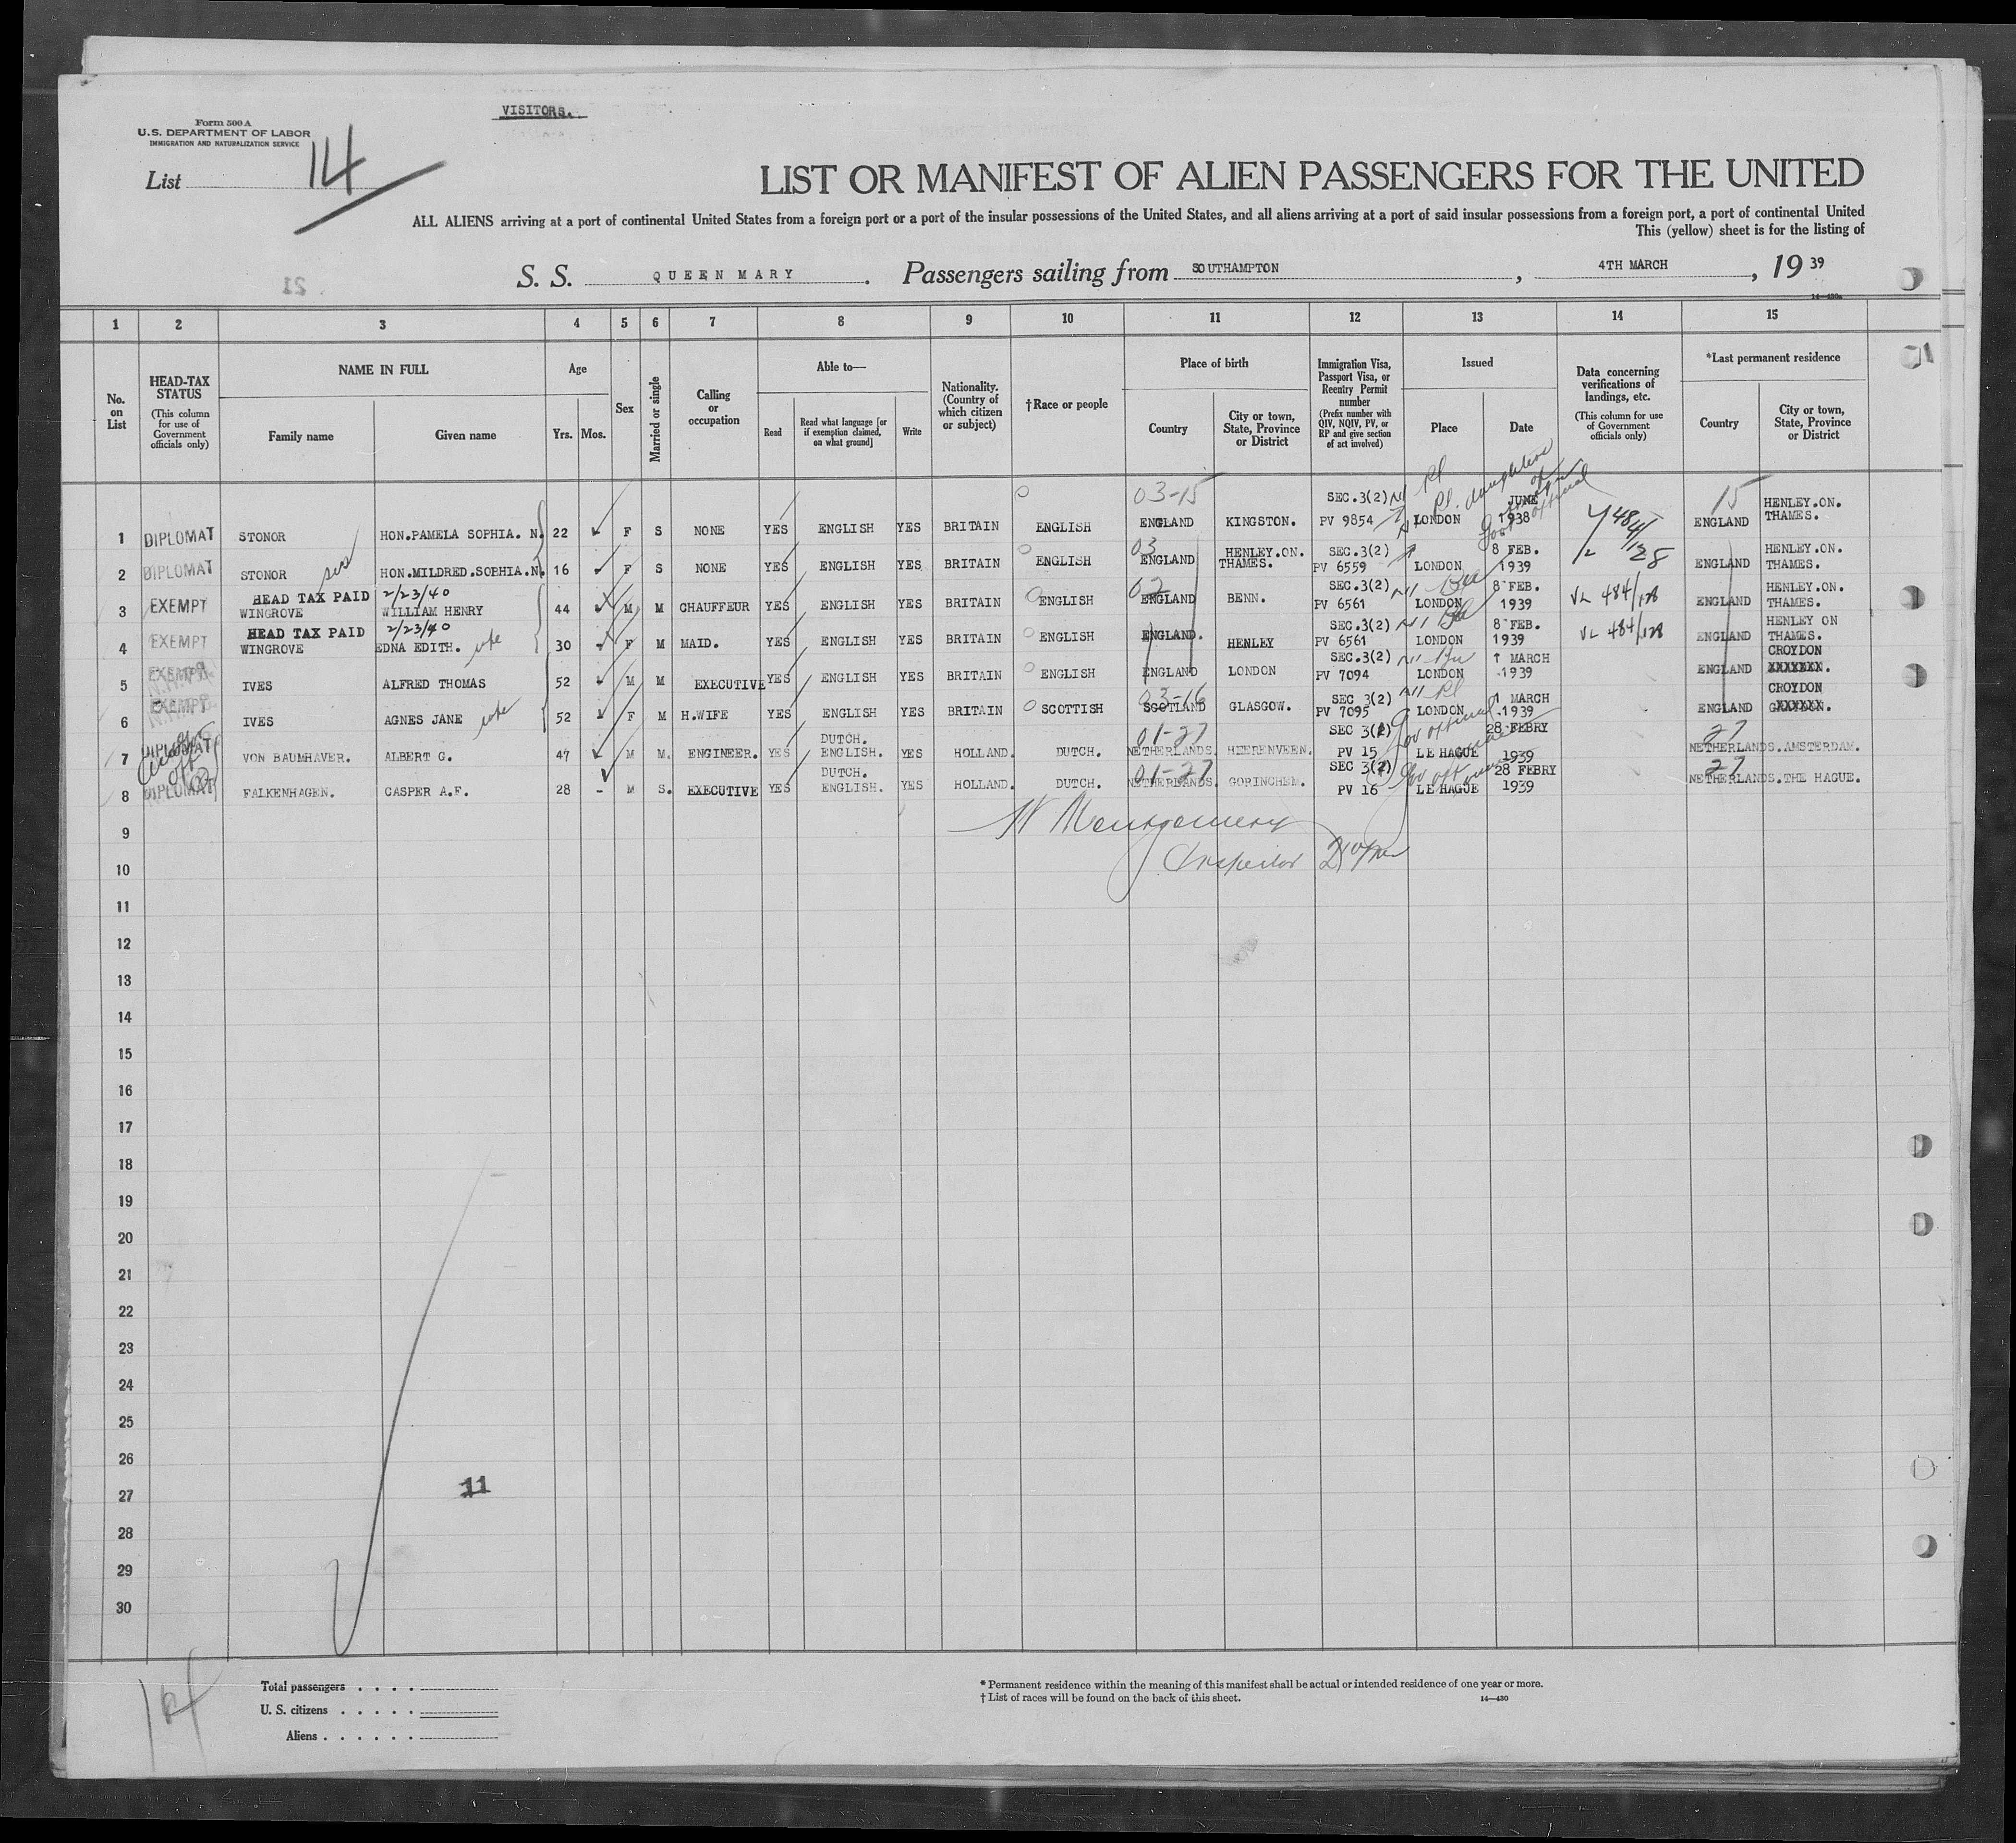 VISITORS.
Form 500 A
U.S. DEPARTMENT OF LABOR
IMMIGRATION AND NATURALIZATION SERVICE
List 14
LIST OR MANIFEST OF ALIEN PASSENGERS FOR THE UNITED
ALL ALIENS arriving at a port of continental United States from a foreign port or a port of the insular possessions of the United States, and all aliens arriving at a port of said insular possessions from a foreign port, a port of continental United
This (yellow) sheet is for the listing of
S. S. QUEEN MARY. Passengers sailing from SOUTHAMPTON, 4TH MARCH, 1939
14—430a
1 2 3 4 5 6 7 8 9 10 11 12 13 14 15
No. on List
HEAD-TAX STATUS
(This column for use of Government officials only)
NAME IN FULL
Family name Given name
Age
Yrs. Mos.
Sex
Married or single
Calling or occupation
Able to—
Read Read what language [or if exemption claimed, on what ground] Write
Nationality. (Country of which citizen or subject)
†Race or people
Place of birth
Country City or town, State, Province or District
Immigration Visa, Passport Visa, or Reentry Permit number
(Prefix number with QIV, NQIV, PV, or RP and give section of act involved)
Issued
Place Date
Data concerning verifications of landings, etc.
(This column for use of Government officials only)
*Last permanent residence
Country City or town, State, Province or District
03-15 SEC.3(2) JUNE 15 HENLEY.ON.
1 DIPLOMAT STONOR HON.PAMELA SOPHIA. N. 22 F S NONE YES ENGLISH YES BRITAIN ENGLISH ENGLAND KINGSTON. PV 9854 LONDON 1938 484/128 ENGLAND THAMES.
03 HENLEY.ON. SEC.3(2) 8 FEB. HENLEY.ON.
2 DIPLOMAT STONOR HON.MILDRED.SOPHIA.N. 16 F S NONE YES ENGLISH YES BRITAIN ENGLISH ENGLAND THAMES. PV 6559 LONDON 1939 ENGLAND THAMES.
HEAD TAX PAID 2/23/40 02 SEC.3(2) 8 FEB. HENLEY.ON.
3 EXEMPT WINGROVE WILLIAM HENRY 44 M M CHAUFFEUR YES ENGLISH YES BRITAIN ENGLISH ENGLAND BENN. PV 6561 LONDON 1939 VL 484/128 ENGLAND THAMES.
HEAD TAX PAID 2/23/40 SEC.3(2) 8 FEB. HENLEY ON
4 EXEMPT WINGROVE EDNA EDITH. 30 F M MAID. YES ENGLISH YES BRITAIN ENGLISH ENGLAND. HENLEY PV 6561 LONDON 1939 VL 484/128 ENGLAND THAMES.
SEC.3(2) 1 MARCH CROYDON
5 EXEMPT IVES ALFRED THOMAS 52 M M EXECUTIVE YES ENGLISH YES BRITAIN ENGLISH ENGLAND LONDON PV 7094 LONDON 1939 ENGLAND XXXXXXX.
03-16 SEC 3(2) 1 MARCH CROYDON
6 EXEMPT IVES AGNES JANE wife 52 F M H.WIFE YES ENGLISH YES BRITAIN SCOTTISH SCOTLAND GLASGOW. PV 7095 LONDON 1939 ENGLAND
DUTCH. 01-27 SEC 3(2) Gov official 28 FEBRY 27
7 DIPLOMAT VON BAUMHAVER. ALBERT G. 47 M M. ENGINEER. YES ENGLISH. YES HOLLAND. DUTCH. NETHERLANDS. HEERENVEEN. PV 15 LE HAGUE 1939 NETHERLANDS. AMSTERDAM.
DUTCH. 01-27 SEC 3(2) 28 FEBRY 27
8 DIPLOMAT FALKENHAGEN. CASPER A.F. 28 M S. EXECUTIVE YES ENGLISH. YES HOLLAND. DUTCH. NETHERLANDS. GORINCHEM. PV 16 LE HAGUE 1939 NETHERLANDS. THE HAGUE.
9 Montgomery
10 Inspector
11
12
13
14
15
16
17
18
19
20
21
22
23
24
25
26
27 11
28
29
30
Total passengers
U. S. citizens
Aliens
* Permanent residence within the meaning of this manifest shall be actual or intended residence of one year or more.
† List of races will be found on the back of this sheet. 14—430